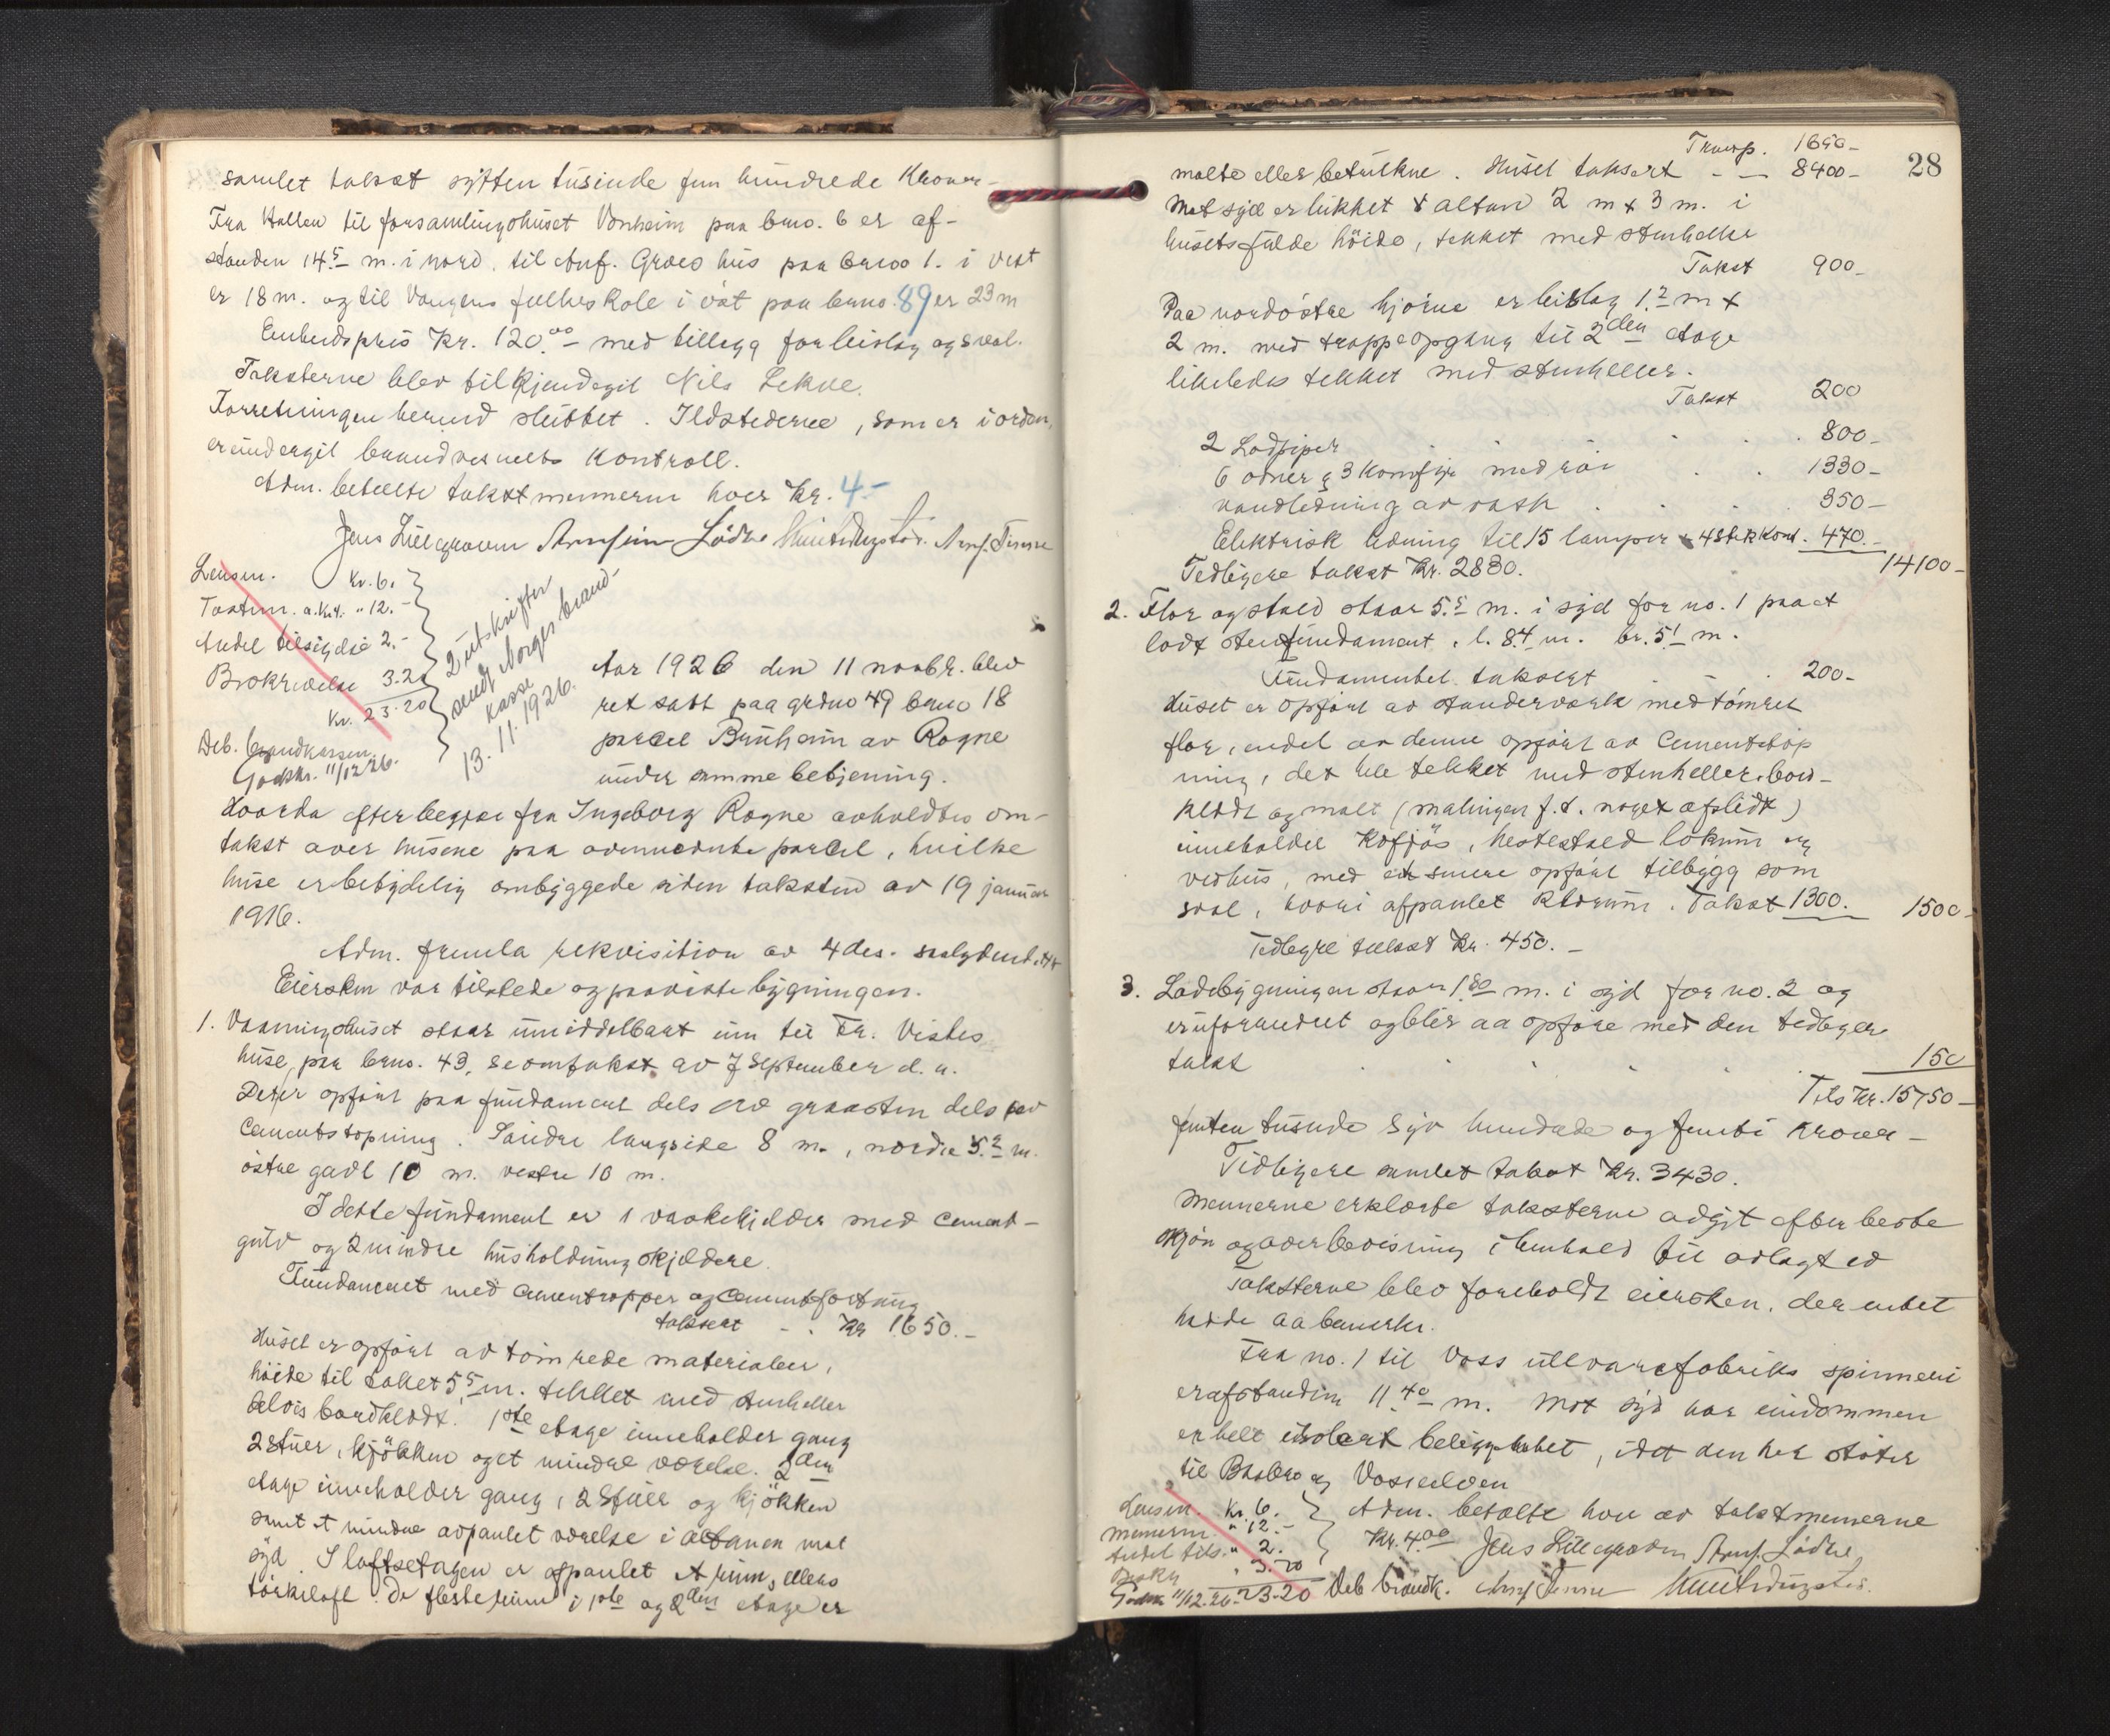 samlet takst sytten tusinde fem hundrede Kroner –
Fra Hallen til forsamlingshuset Vonheim paa bno. 6 er af-
standen 14.5 m. i nord. til Anf. Græes hus paa bno 1. i vest
er 18 m. og til Vangens folkeskole i øst paa bno. 89 er 23 m
Enhedspris Kr. 120.00 – med tillegg for bislag og sval.
Taksterne blev tilkjendegit Nils Lekve.
Forretningen hermed sluttet. Ildstederne, som er i orden,
er undergit brandvesnets kontroll.
Adm. betalte takstmennerne hver Kr. 4.–
Jens Lillegraven Arnfinn Lödve
Lensm. Kr. 6.
Takstm. a. kr 4. " 12.–
Andel tilsigelse 2.–
Brokrivelse 3.20
Kr. 23.20
Deb. brandkassen.
Godskr. 11/12 26.
2 utskrifter
sendt Norges brand-
kasse
13.11.1926.
Aar 1926 den 11 novbr. blev
ret satt paa grdno 49 bno 18
parcel Brunheim av Rogne
under samme betjening.
Hvorda efter begjær fra Ingeborg Rogne avholdtes om-
takst over husene paa ovennevnte parcel, hvilke
huse er betydelig ombyggede siden taksten av 19 januar
1916.
Adm. fremla rekvisition av 4 des. saalydende
Eiersken var tilstede og paaviste bygningen.
1. Vaaningshuset staar umiddelbart inn til Fr. Vistes
huse, paa bno. 43, se omtakst av 7 September d. a.
Det er opført paa fundament dels av graasten dels av
Cementstøpning. Søndre langside 8 m., nordre 5.2 m.
østre gavl 10 m. vestre 10 m.
I dette fundament er 1 vaskekjelder med cement-
gulv og 2 mindre husholdningskjeldere.
Fundamentet med Cementtrapper og Cementfortaug
taksert – . Kr 1650.–
Huset er opført av tømrede materialier,
høide til taket 5.5 m. tekket med stenheller
delvis bordklædt. 1ste etage inneholder gang
2 stuer, kjøkken og et mindre værelse. 2den
etage inneholder gang, 2 stuer og kjøkken
samt et mindre avpanlet værelse i altanen mot
syd. I loftsetagen er afpanlet et rum, ellers
tørkeloft. De fleste rum i 1ste og 2den etage er
28
Transp. 1650 –
malte eller betrukne. Huset taksert – — 8400 –
Mot syd er bikket & altan 2 m x 3 m. i
husets fulde høide, tekket med stenheller
Takst 900 –
Paa nordøstre hjørne er bislag 1.2 m x
2 m. med trappeopgang til 2den etage
likeledes tekket med stenheller.
Takst 200
2 Lodpiper . . . . 800 –
6 ovner & 3 komfyr med rør . . 1330 –
vandledning av vask . . . 350 –
Elektrisk ledning til 15 lamper & 4 Stikkont. 470.–
14100 –
Tedligere takst Kr. 2830.
2. Flor og stald staar 5.5 m. i syd for no. 1 paa et
lødt stenfundament. l. 8.4 m. br. 5.1 m.
Fundamentet taksert . . 200 –
Huset er opført av standerverk med tømret
flor, endel av denne opført av Cementstøp
ning, det hele tekket med stenheller, bord-
klædt og malt (malingen f.t. noget afslidt)
inneholder Kofjøs, hestestald lokum og
vedhus, med et smere opført tilbygg som
sval, hvori afpanlet klorum. Takst 1300. 1500 –
Tedligere takst Kr. 450.–
3. Ladebygningen staar 1.80 m. i syd for no. 2 og
er uforandret og blir aa opføre med den tedligere
takst . . . . . 150
Tils Kr. 15750 –
femten tusende Syv hundrede og femti kroner –
Tidligere samlet takst Kr. 3430.
Mennerne erklærte taksterne avgit efter beste
skjøn og overbevisning i henhold til avlagt ed
Taksterne blev foreholdt eiersken, der intet
hadde aa bemerke.
Fra no. 1 til Voss ullvarefabriks spinneri
er afstanden 11.40 m. Mot syd har eindommen
en helt isolert beliggenhet, idet den her støter
til Bksbro og Vosseelven
Lensm. Kr. 6.
Mennerne " 12.–
Andel tils. " 2.
Beskr " 3.20
Godskr 11/12.26. 23.20 Deb brandk.
Adm. betalte hver av takstmennerne
Kr. 4.00 Jens Lillegraven Arnf. Lödve